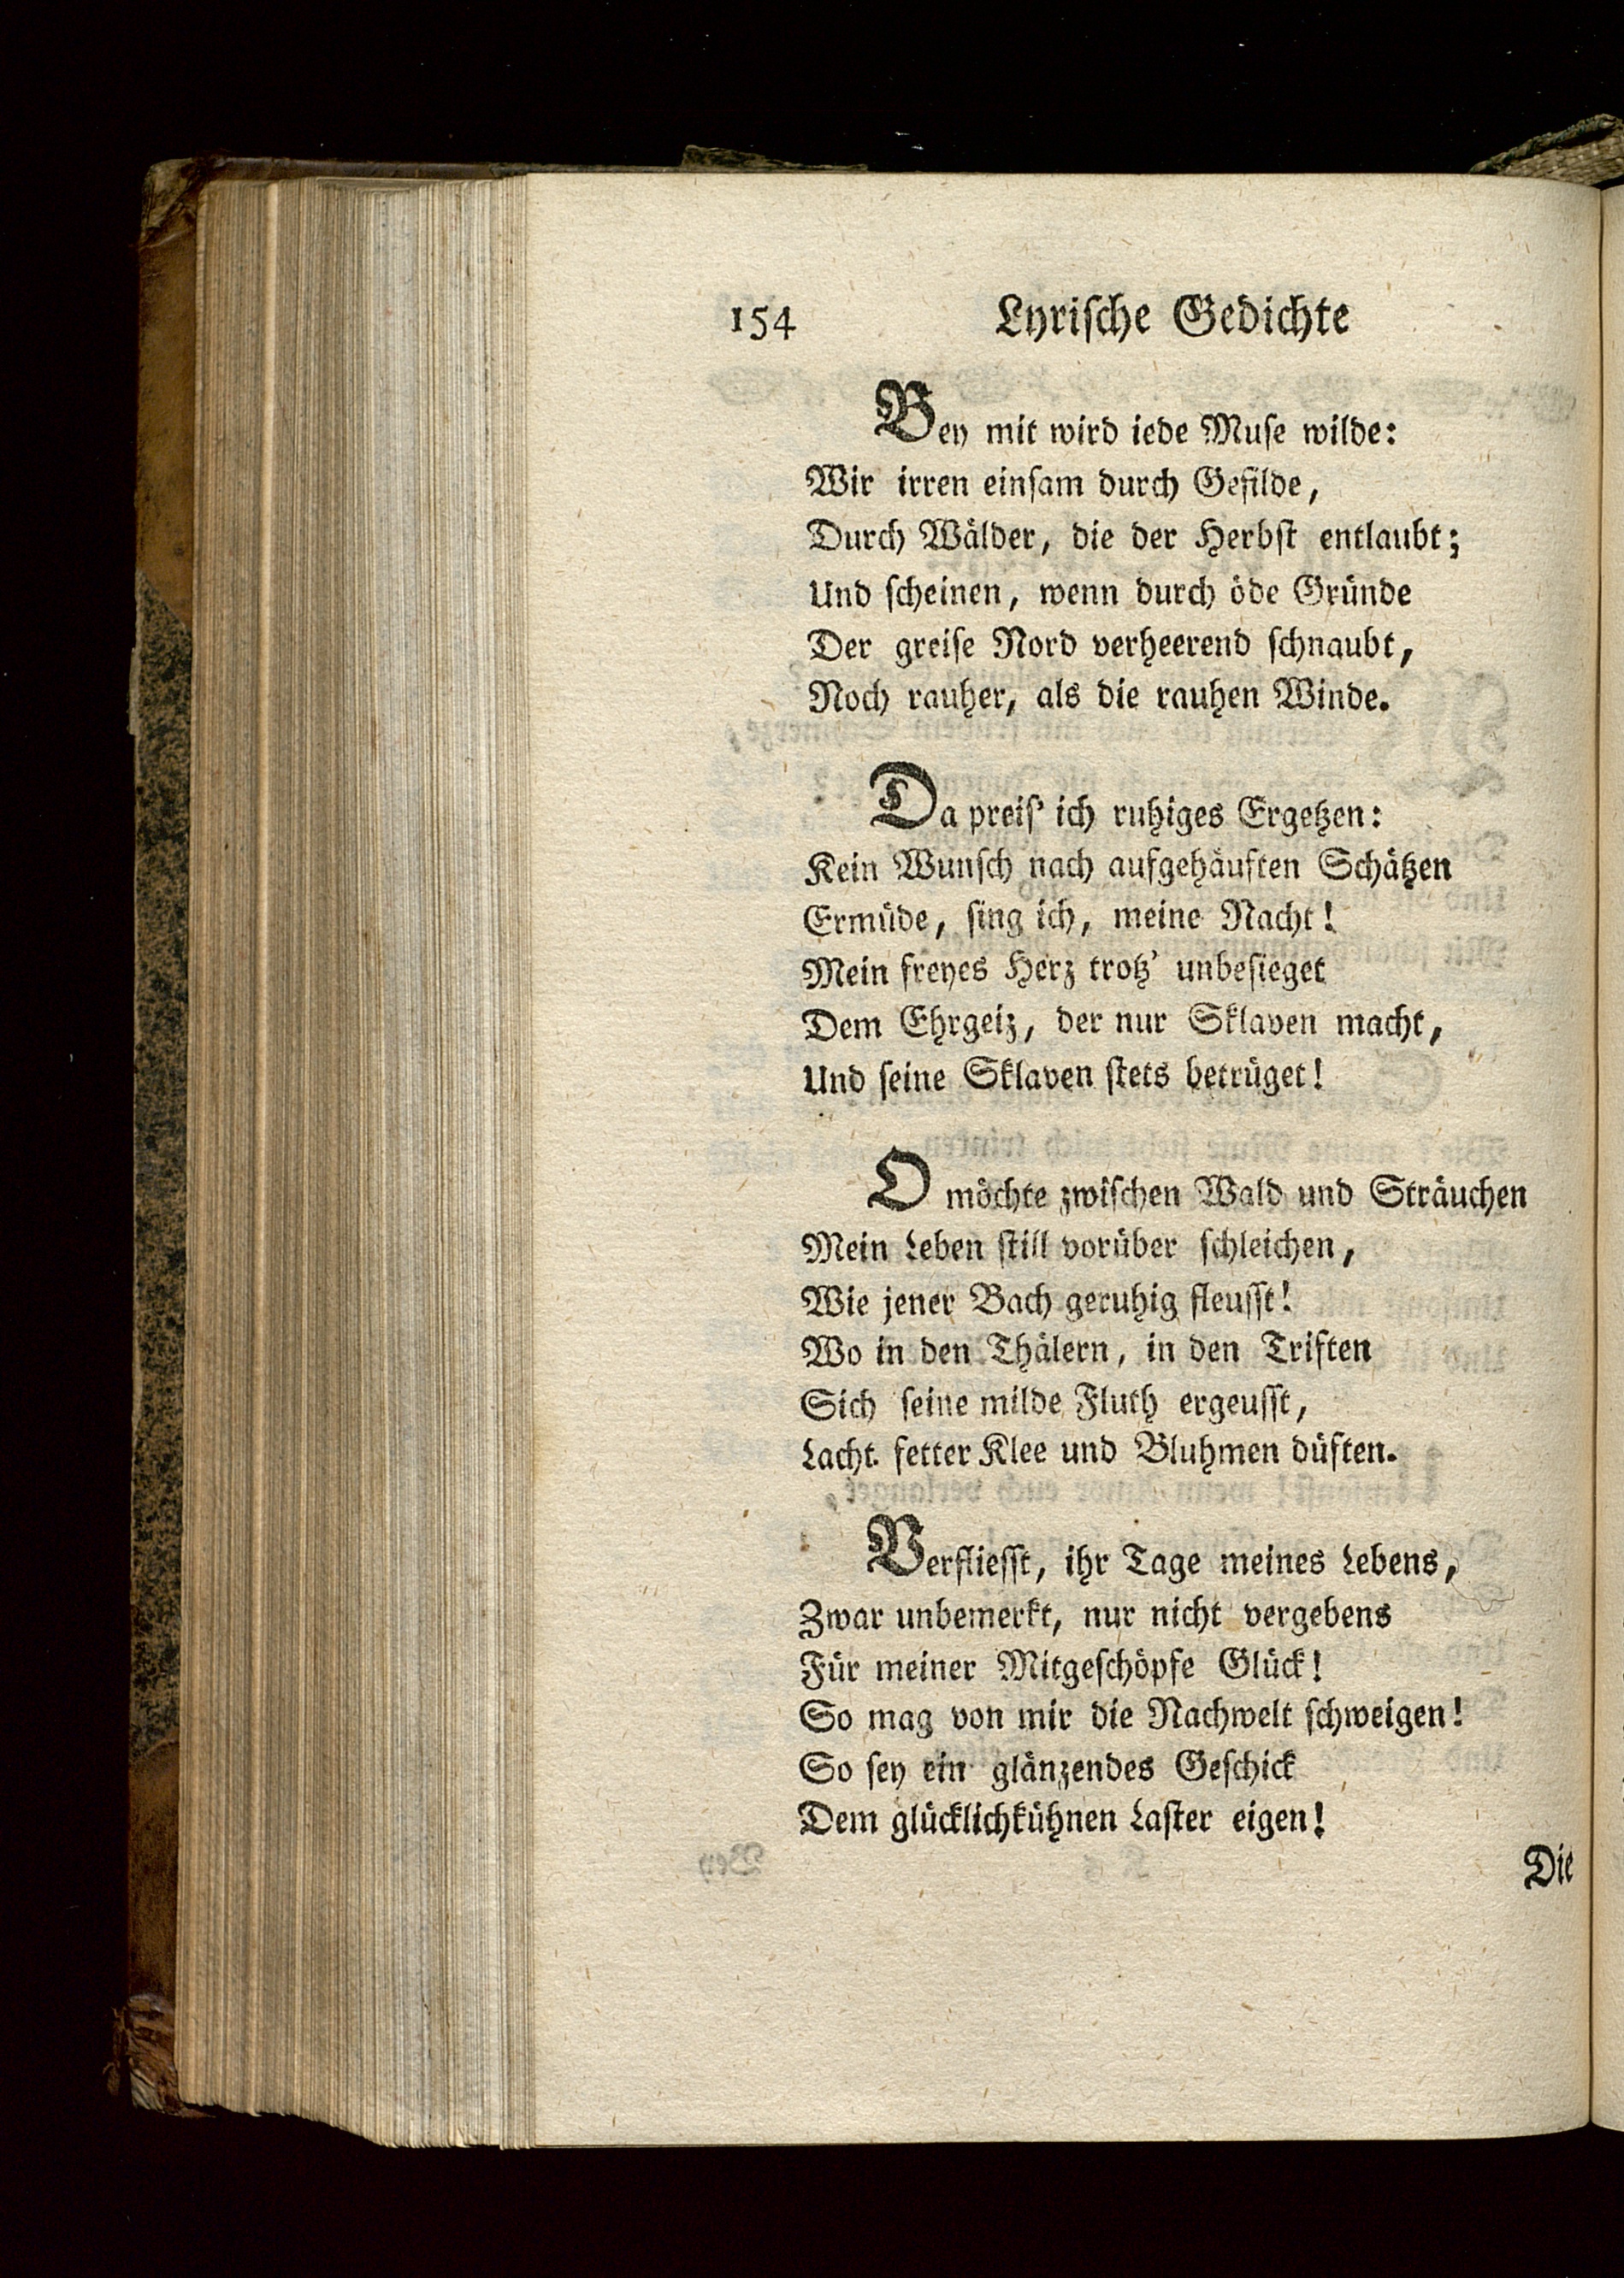 154 Lyrische Gedichte
Bey mit wird iede Muse wilde:
Wir irren einsam durch Gefilde,
Durch Wälder, die der Herbst entlaubt;
Und scheinen, wenn durch öde Gründe
Der greise Nord verheerend schnaubt,
Noch rauher, als die rauhen Winde.
Da preis' ich ruhiges Ergetzen:
Kein Wunsch nach aufgehäuften Schätzen
Ermüde, sing ich, meine Nacht!
Mein freyes Herz trotz' unbesieget
Dem Ehrgeiz, der nur Sklaven macht,
Und seine Sklaven stets betrüget!
O möchte zwischen Wald und Sträuchen
Mein Leben still vorüber schleichen,
Wie jener Bach geruhig fleusst!
Wo in den Thälern, in den Triften
Sich seine milde Fluth ergeusst,
Lacht fetter Klee und Bluhmen düften.
Verfliesst, ihr Tage meines Lebens,
Zwar unbemerkt, nur nicht vergebens
Für meiner Mitgeschöpfe Glück!
So mag von mir die Nachwelt schweigen!
So sey ein glänzendes Geschick
Dem glücklichkühnen Laster eigen!
Die